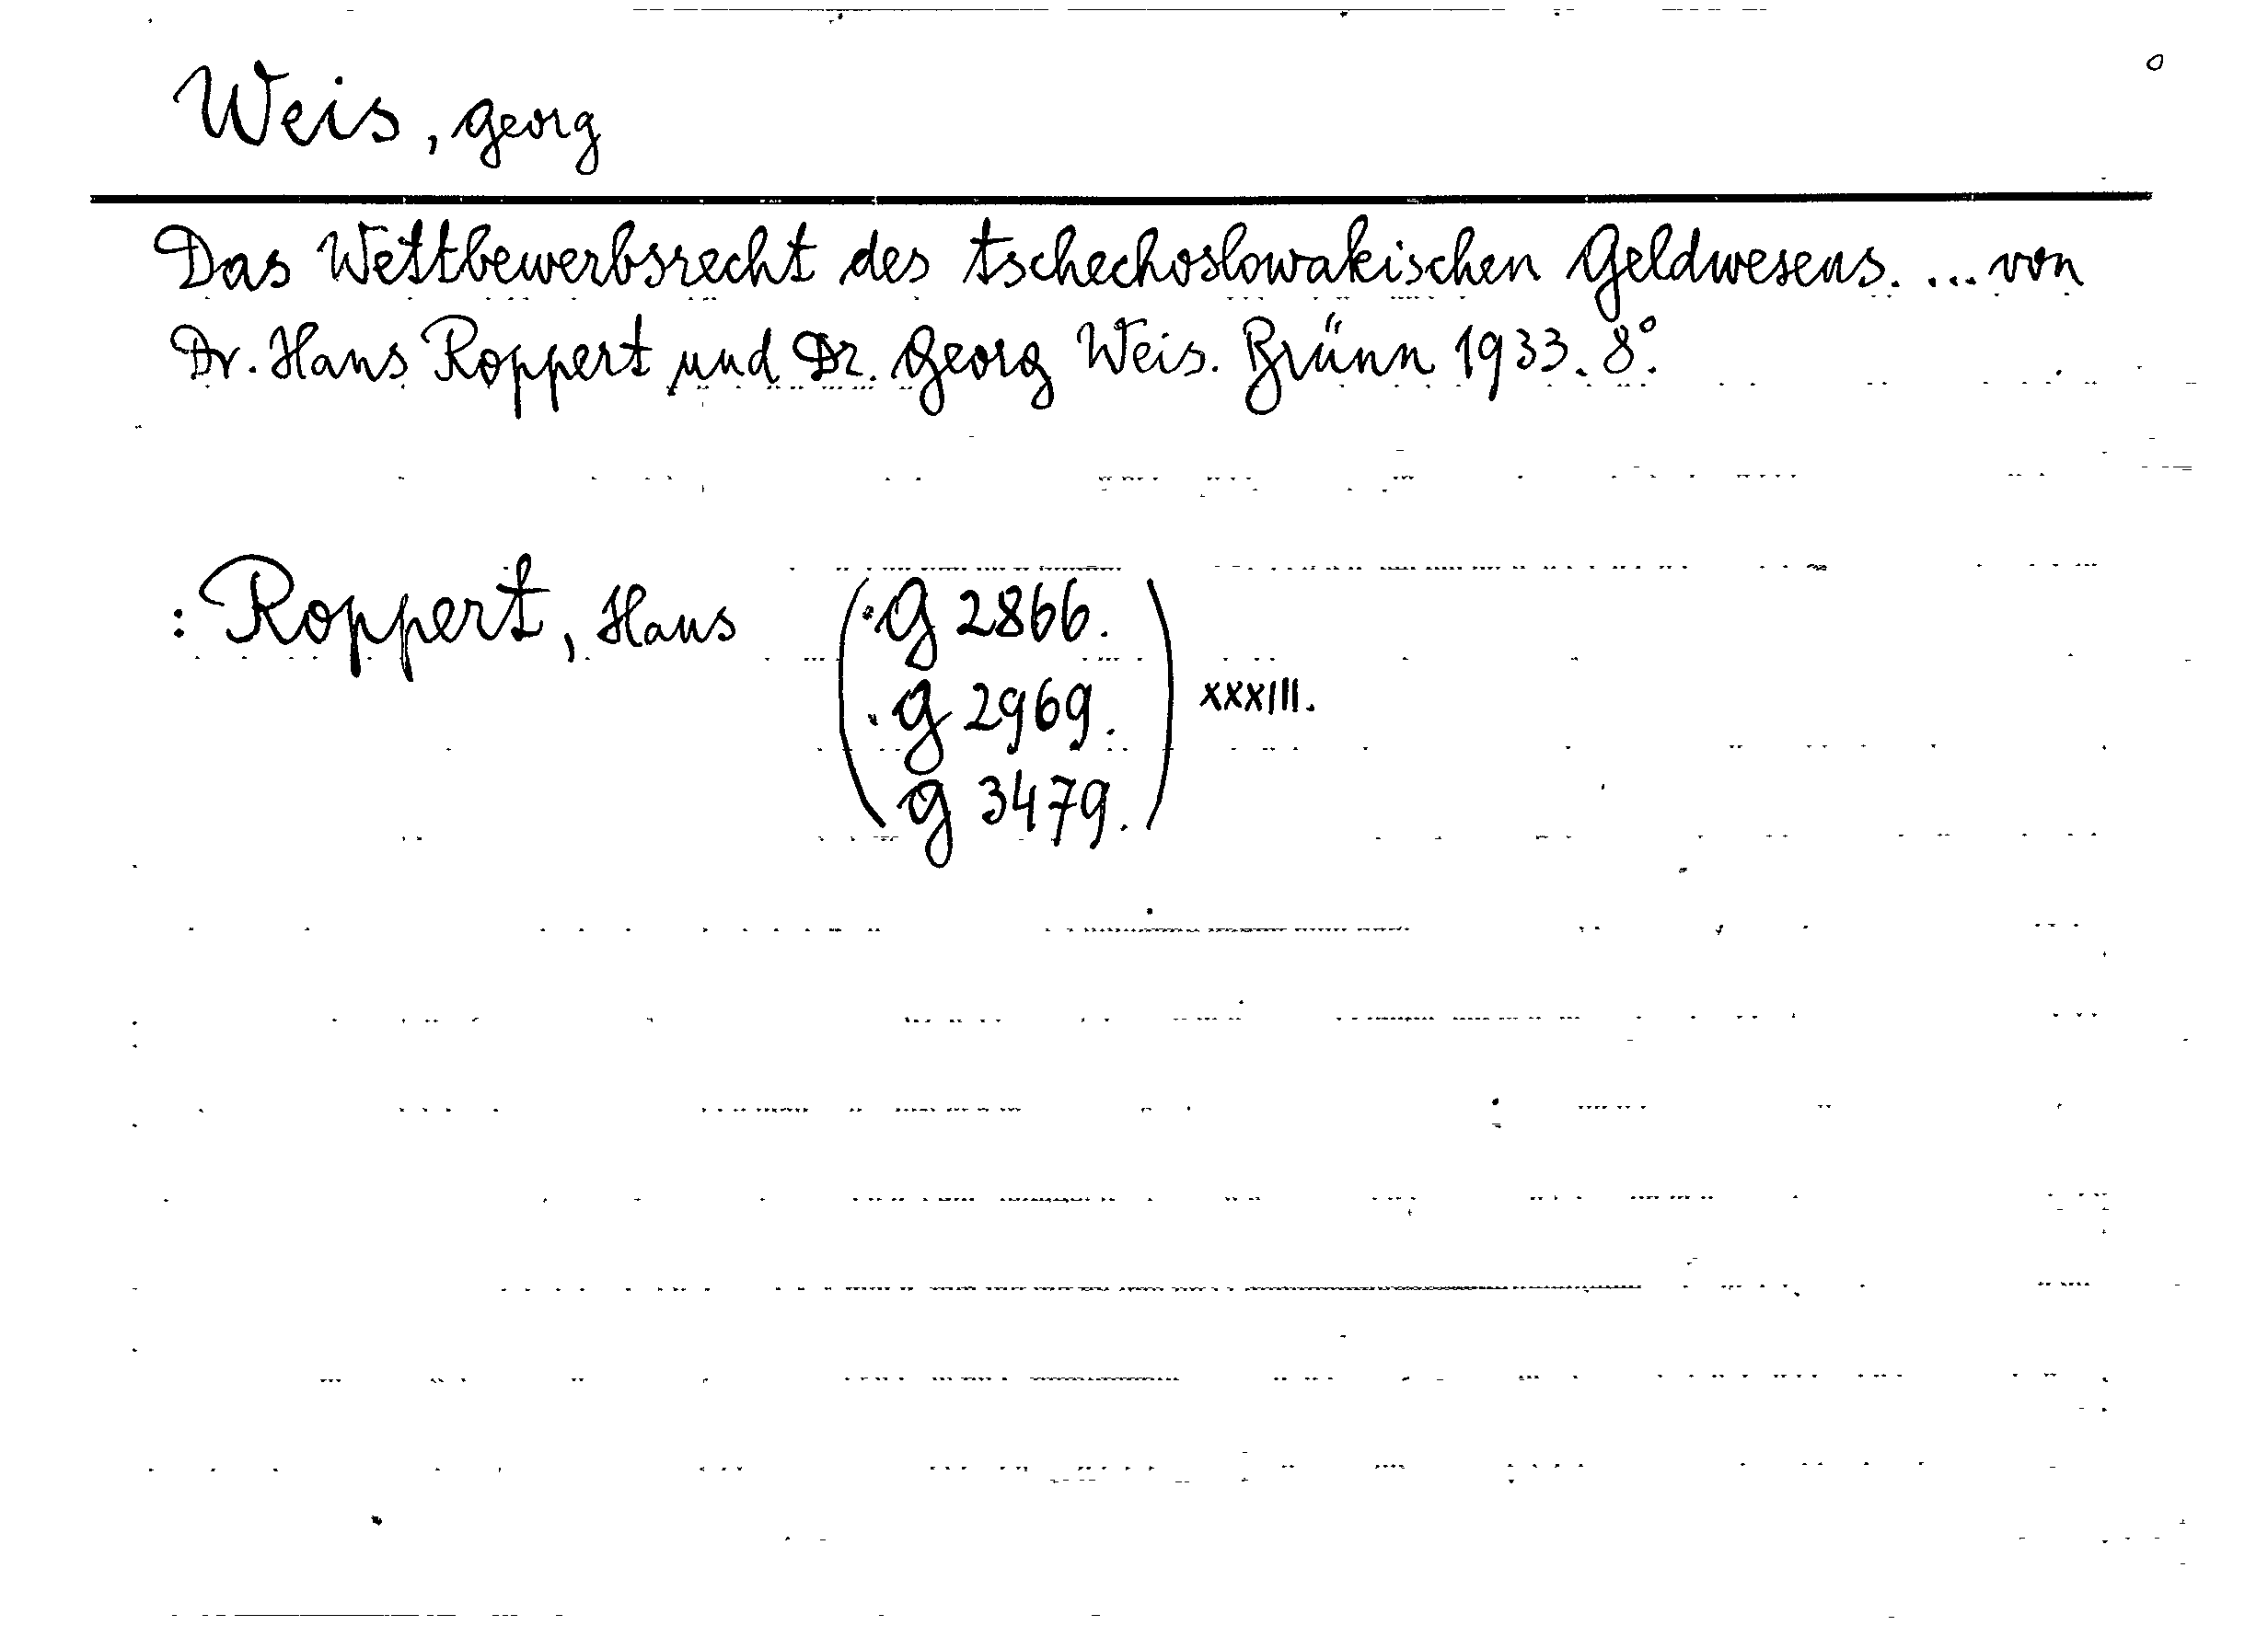 Weis, Georg
Das Wettbewerbsrecht des tschechoslowakischen Geldwesens. ... von
Dr. Hans Roppert und Dr. Georg Weis. Brünn 1933. 8°.
: Roppert, Hans
G 2866.
G 2969.
G 3479.
XXXIII.